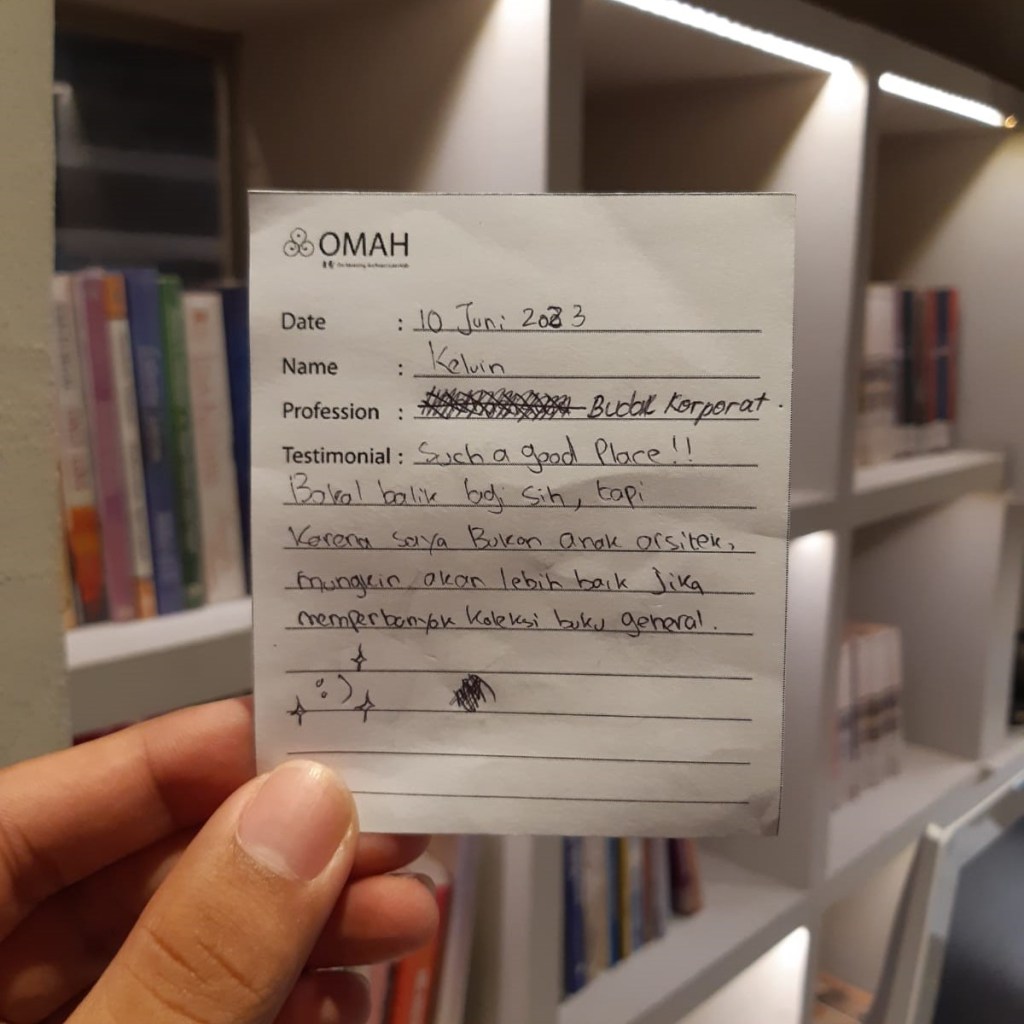 OMAH
Date : 10 Juni 2023
Name : Kelvin
Profession : Budak Korporat.
Testimonial : Such a good Place!!
Bakal balik lagi sih, tapi
Karena saya Bukan anak arsitek,
mungkin akan lebih baik Jika
memperbanyak Koleksi buku general.
:)